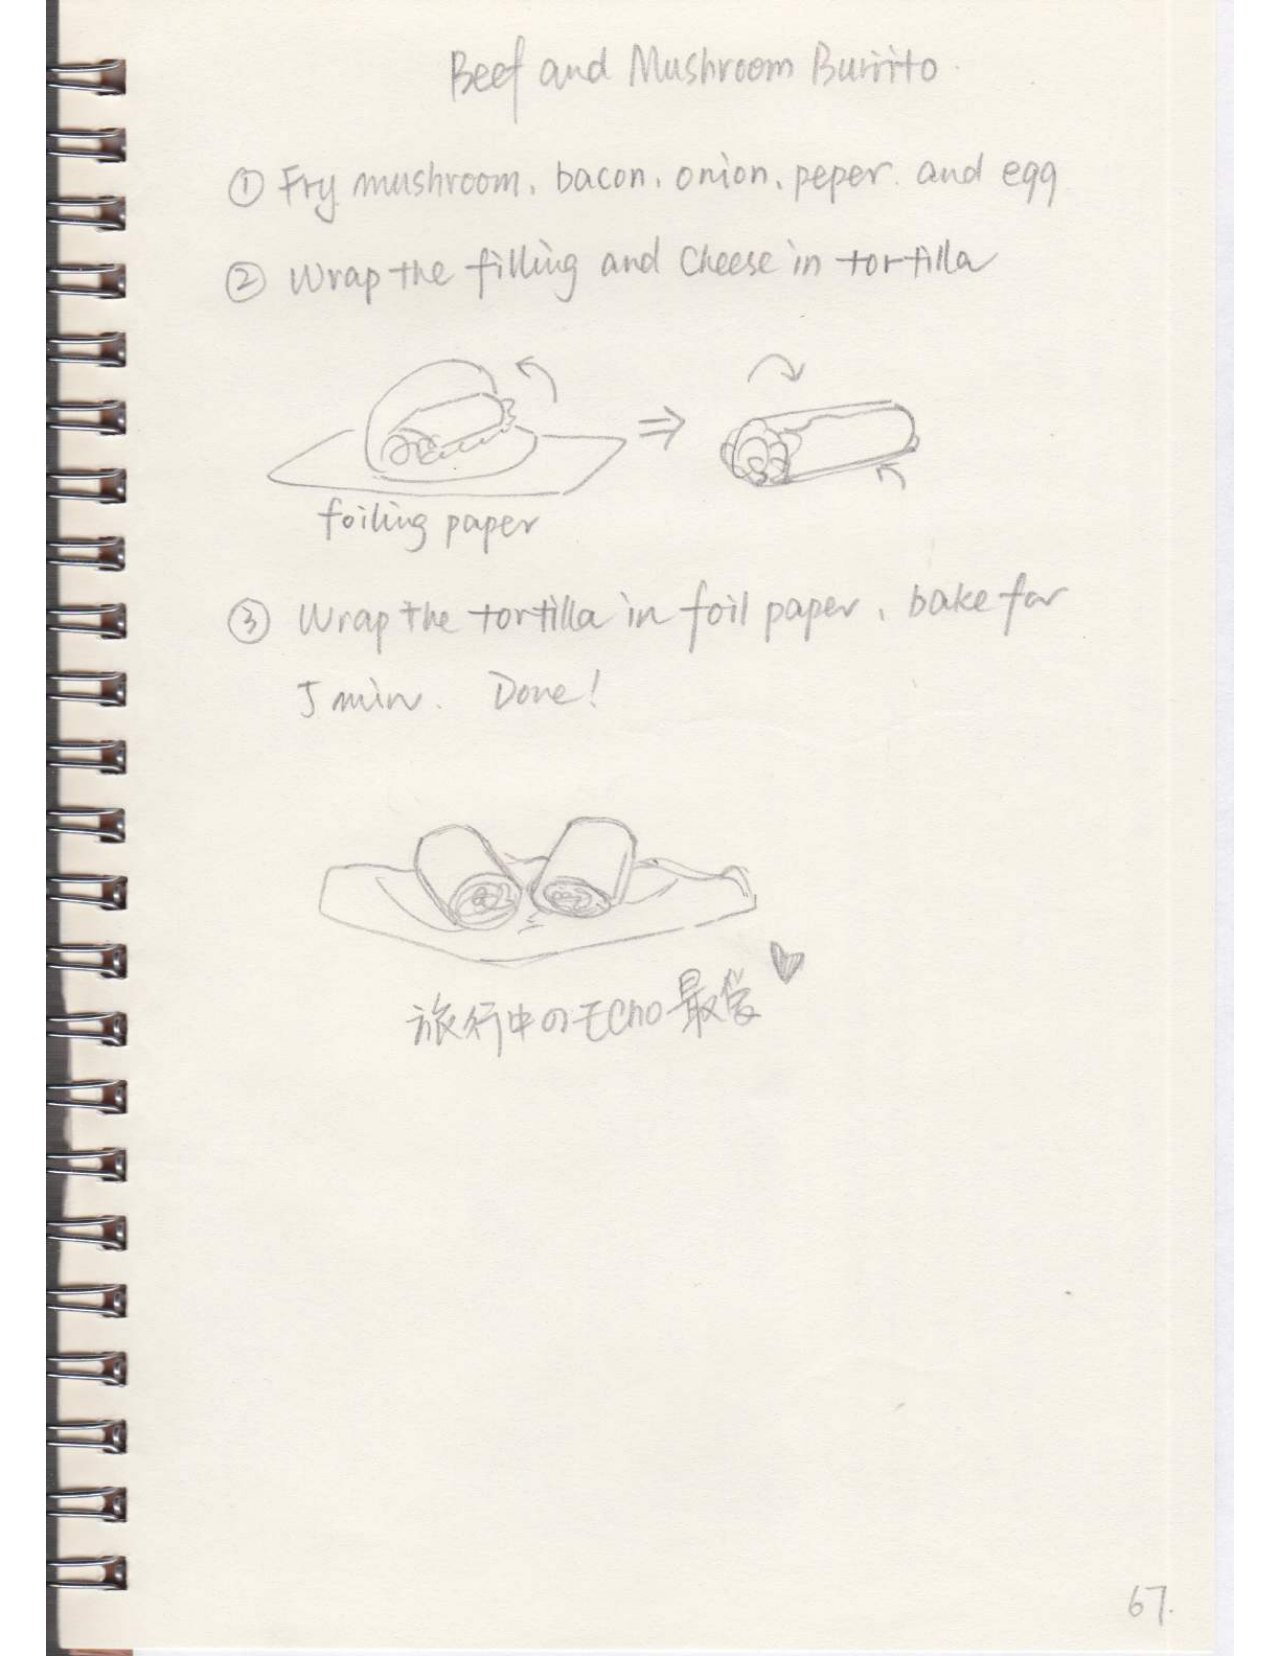 Beef and Mushroom Burrito
① Fry mushroom, bacon, onion, peper. and egg
② Wrap the filling and Cheese in tortilla
foiling paper
③ Wrap the tortilla in foil paper, bake for
5 min. Done!
旅行中のECHO最
67.